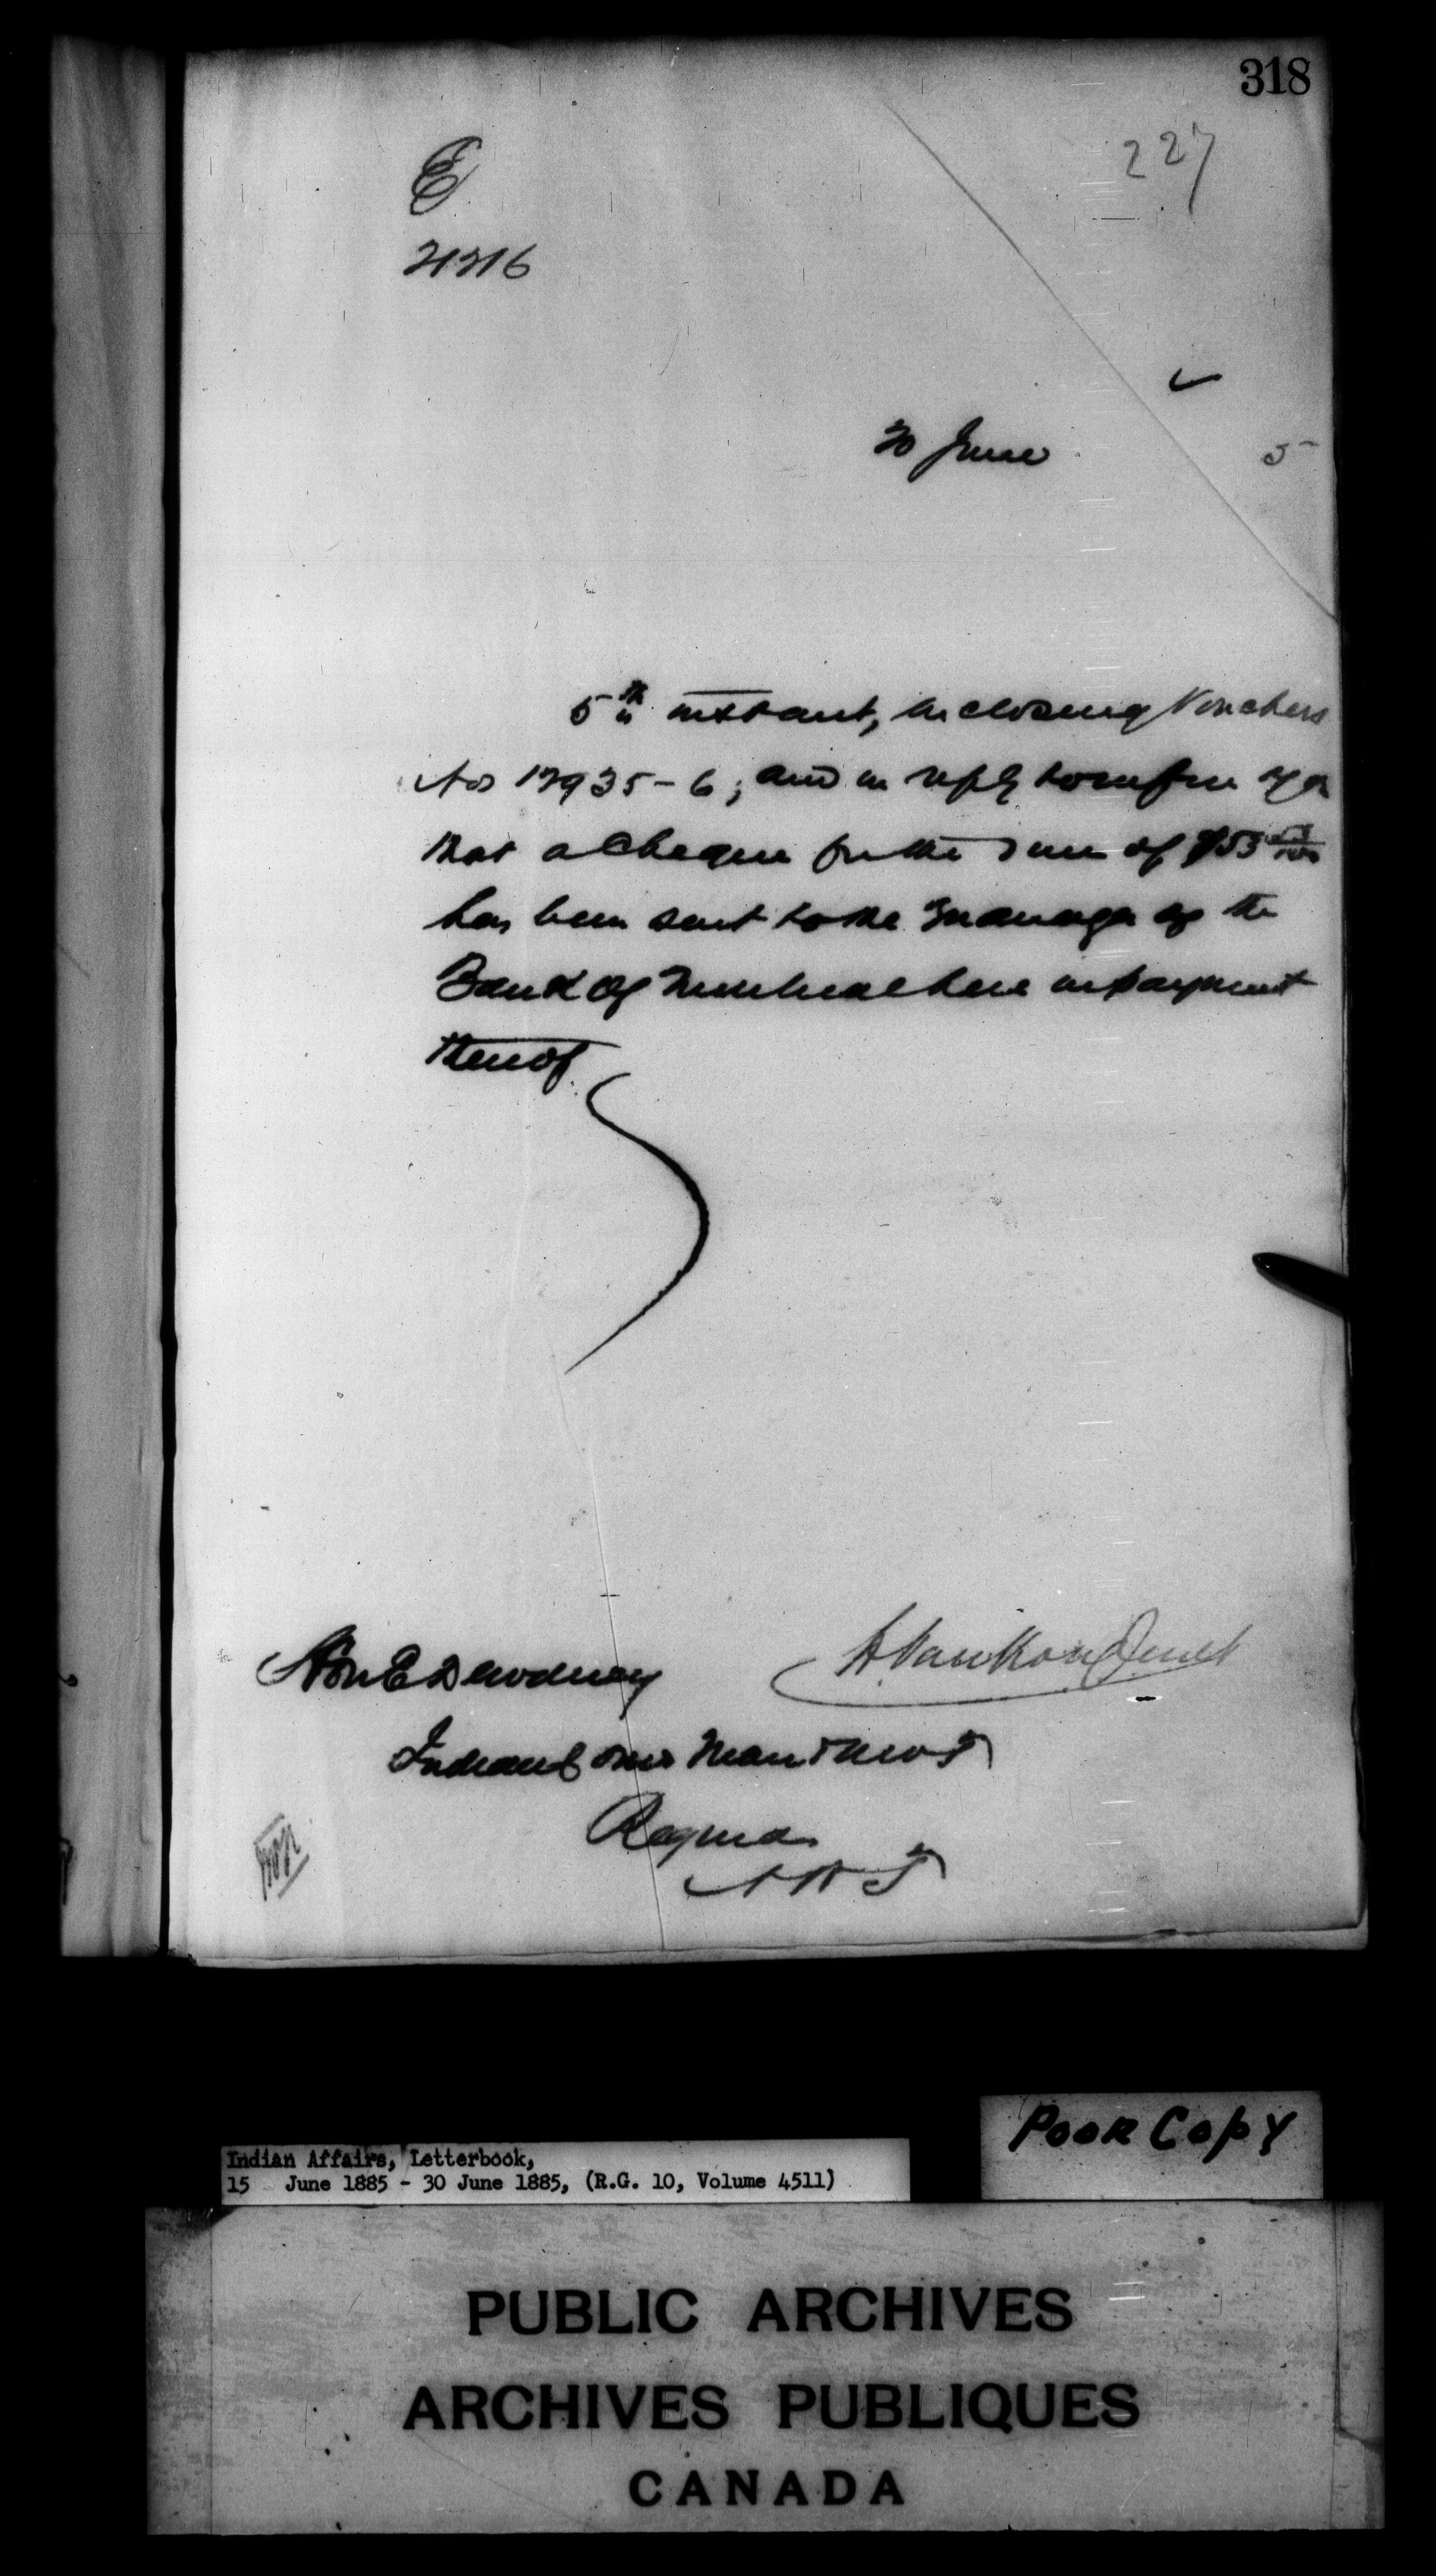 318
227
E
21216
20 June 5
5th instant, inclosing Vouchers
Nos 12935-6; and in reply to inform you
that a Cheque for the sum of $53
has been sent to the Manager of the
Bank of Montreal here in payment
thereof.
L. VanKoughnet
Hon E Dewdney
Indian Comr Man & N.W.T
Regina
N W T
Poor Copy
Indian Affairs, Letterbook,
15 June 1885 - 30 June 1885, (R.G. 10, Volume 4511)
PUBLIC ARCHIVES
ARCHIVES PUBLIQUES
CANADA